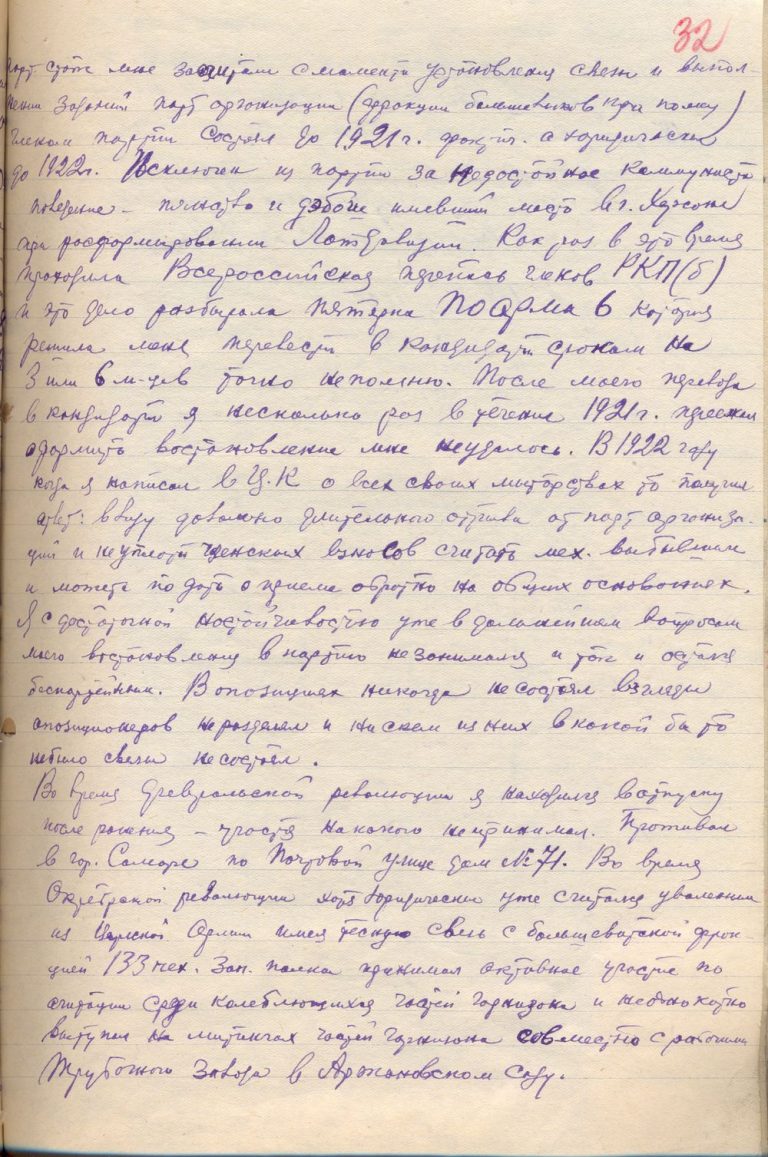 32
парт стаж мне засчитали с момента установления связи и выпол-
нения заданий парт организации (фракции большевиков при полку)
членом партии состоял до 1921 г. фактич. а юридически
до 1922 г. Исключен из партии за недостойное коммуниста
поведение - пьянство и дебош имевший место в г. Херсоне
при расформировании Латдивизии. Как раз в это время
проходила Всероссийская перепись членов РКП(б)
и это дело разбирала пятерка ПОарма 6 которая
решила меня перевести в кандидаты сроком на
3 или 6 м-цев точно не помню. После моего перевода
в кандидаты я несколько раз в течение 1921 г. переезжал
оформить востановление мне неудалось. В 1922 году
когда я написал в Ц.К о всех своих мытарствах то получил
ответ: ввиду довольно длительного отрыва от парт организа-
ций и неуплаты членских взносов считать мех. выбывшим
и может подать о приеме обратно на общих основаниях.
Я с достаточной настойчивостью уже в дальнейшем вопросом
моего востановления в партию незанимался и так и остался
беспартийным. В опозициях никогда несостоял взгляды
опозиционеров неразделял и нискем из них в какой бы то
небыло связи несостоял.
Во время Февральской революции я находился в отпуску
после ранения - участия накакого непринимал. Проживал
в гор. Самаре по Почтовой улице дом № 71. Во время
Октябрьской революции хотя юридически уже считался уволенным
из Царской Армии имея тесную связь с большевитской фрак-
цией 133 пех. Зап. полка принимал активное участие по
агитации среди колеблющихся частей гарнизона и неоднократно
выступал на митингах частей гарнизона совместно с рабочими
Трубочного завода в Аржановском саду.